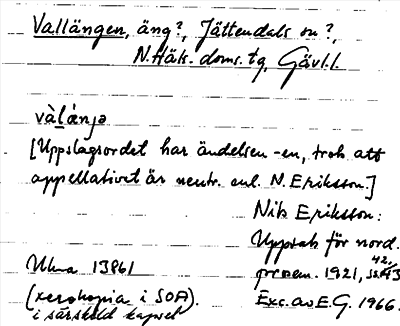 Vallängen, äng?, Jättendals sn?,
N. Häls. doms. tg, Gävl. l.
vàlánjə
[Uppslagsordet har ändelsen -en, trots att
appellativet är neutr. enl. N. Eriksson.]
Nils Eriksson:
Uppsats för nord.
Ulma 13861 prosem. 1921, s. 42, 43
(xerokopia i SOA). Exc. av E.G. 1966.
i särskild kapsel